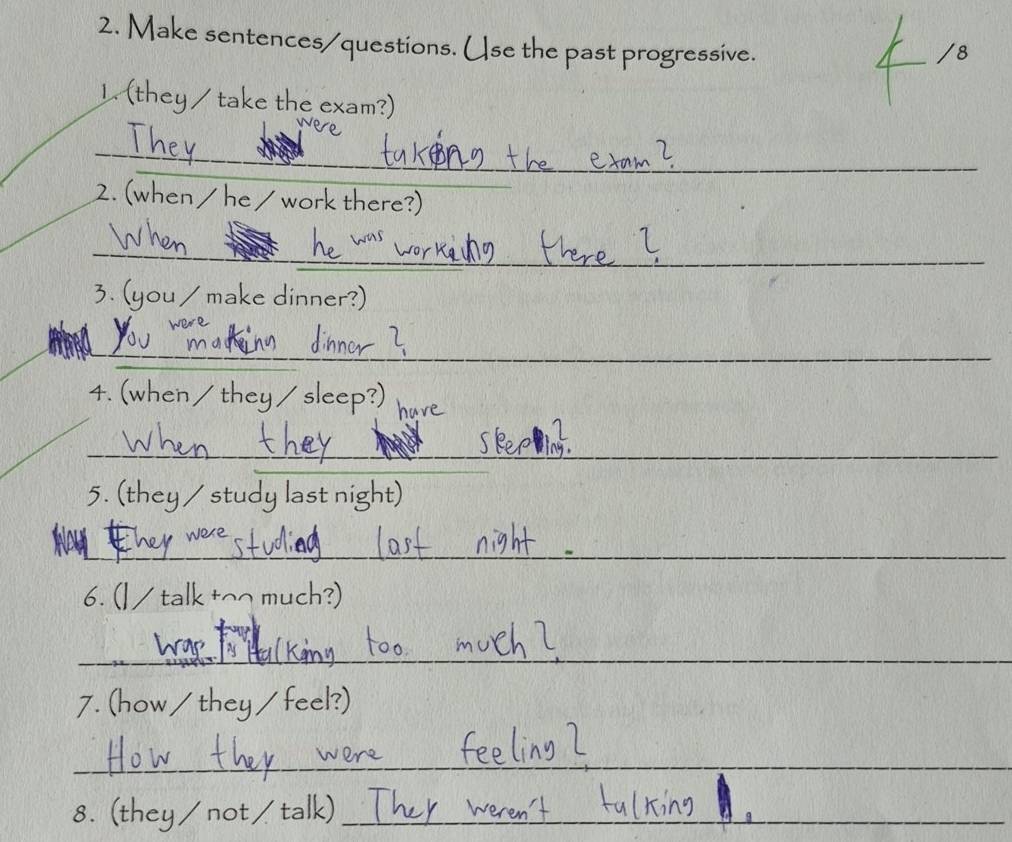 2. Make sentences/questions. Use the past progressive. 4 /8
1. (they / take the exam?)
They were taking the exam?
2. (when / he / work there?)
When he was working there?
3. (you / make dinner?)
You were making dinner?
4. (when / they / sleep?)
When they have sleeping?
5. (they / study last night)
They were studing last night.
6. (I / talk too much?)
Was I talking too much?
7. (how / they / feel?)
How they were feeling?
8. (they / not / talk) They weren't talking.